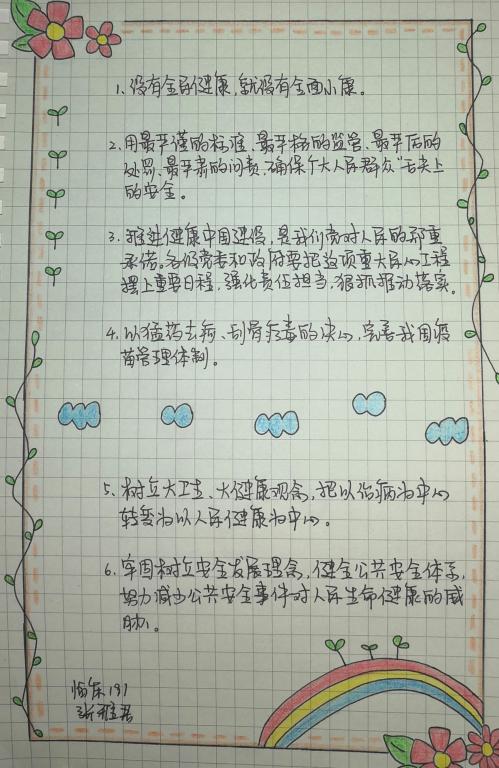 1、没有全民健康，就没有全面小康。
2、用最严谨的标准、最严格的监管、最严厉的
处罚、最严肃的问责，确保广大人民群众“舌尖上
的安全。
3、推进健康中国建设，是我们党对人民的郑重
承诺。各级党委和政府要把这项重大民心工程
摆上重要日程，强化责任担当，狠抓推动落实。
4、以猛药去疴、刮骨疗毒的决心，完善我国疫
苗管理体制。
5、树立大卫生、大健康观念，把以治病为中心
转变为以人民健康为中心。
6、牢固树立安全发展理念，健全公共安全体系，
努力减少公共安全事件对人民生命健康的威
胁。
临床191